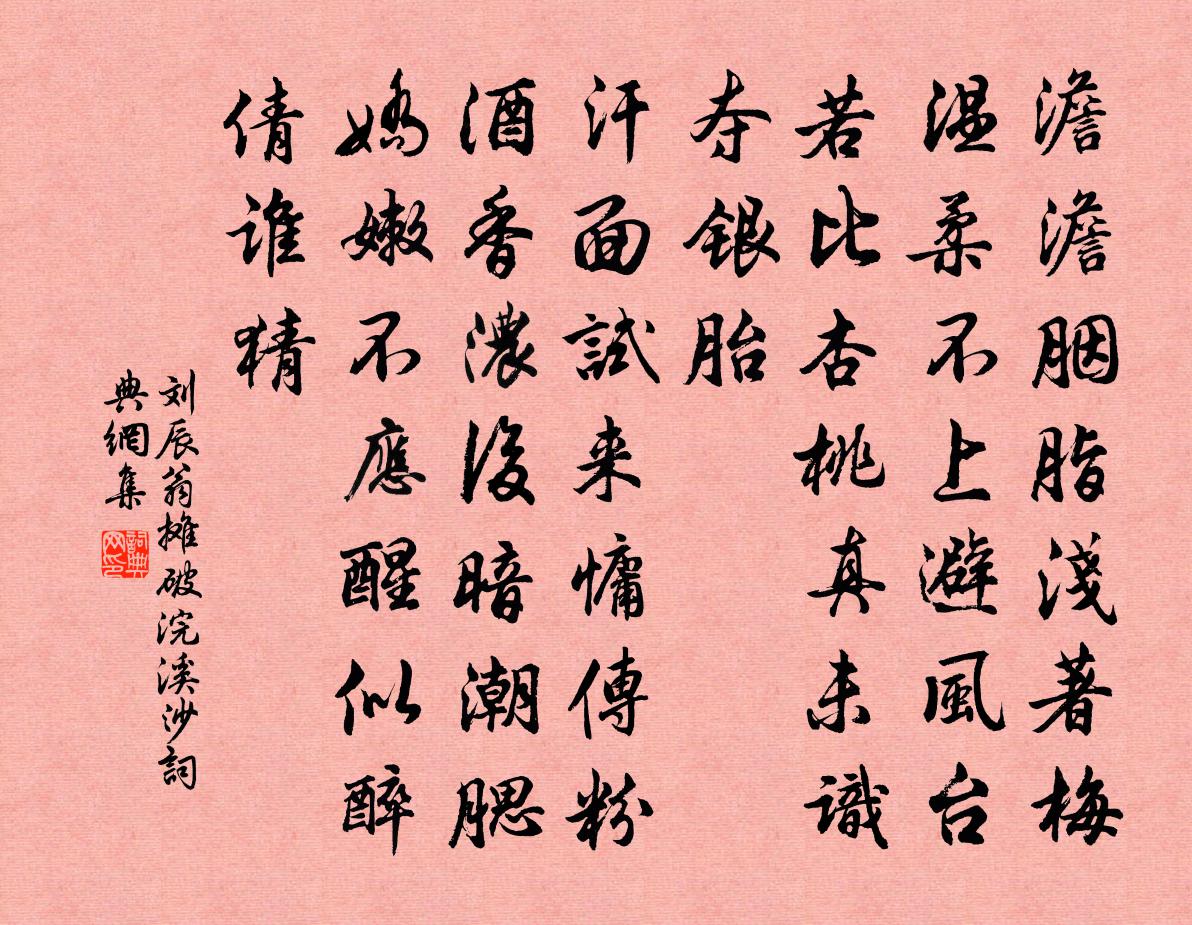 澹澹胭脂淺著梅
温柔不上避風台
若比杏桃真未識
夺銀胎
汗面試来慵傅粉
酒香濃後暗潮腮
嬌嫩不應醒似醉
倩谁猜
刘辰翁摊破浣溪沙詞
典網集
詞典网印